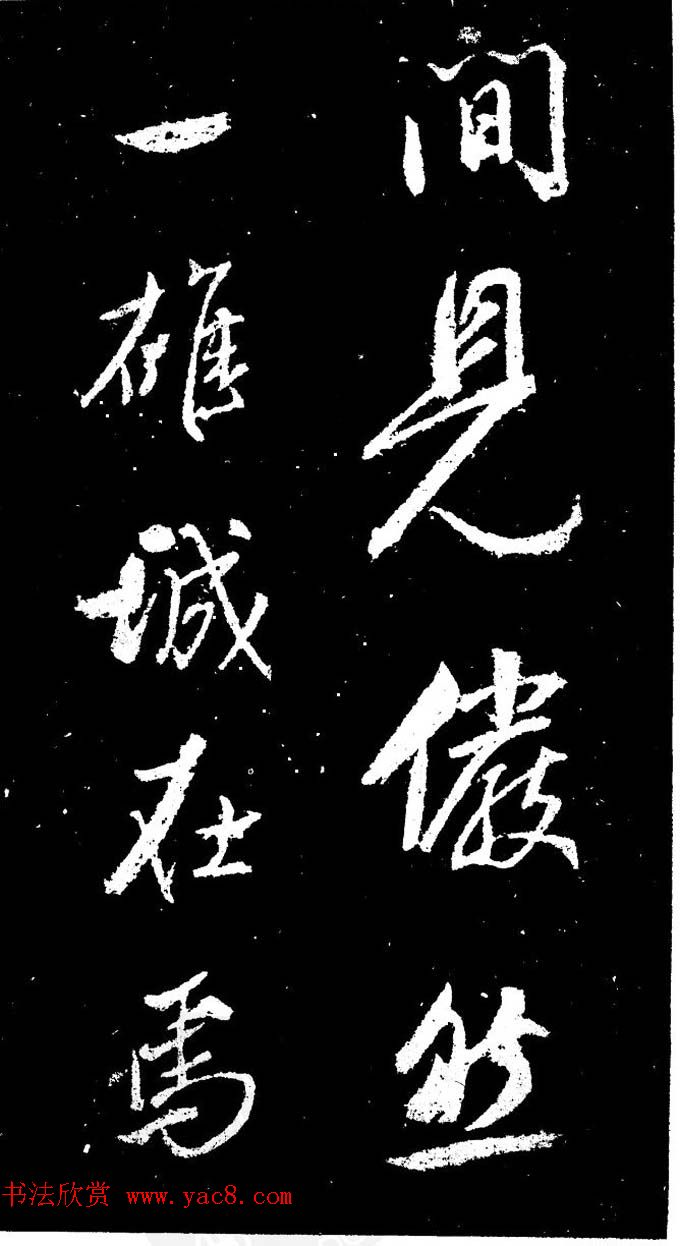 間見儼然
一雄城在焉
书法欣赏 www.yac8.com